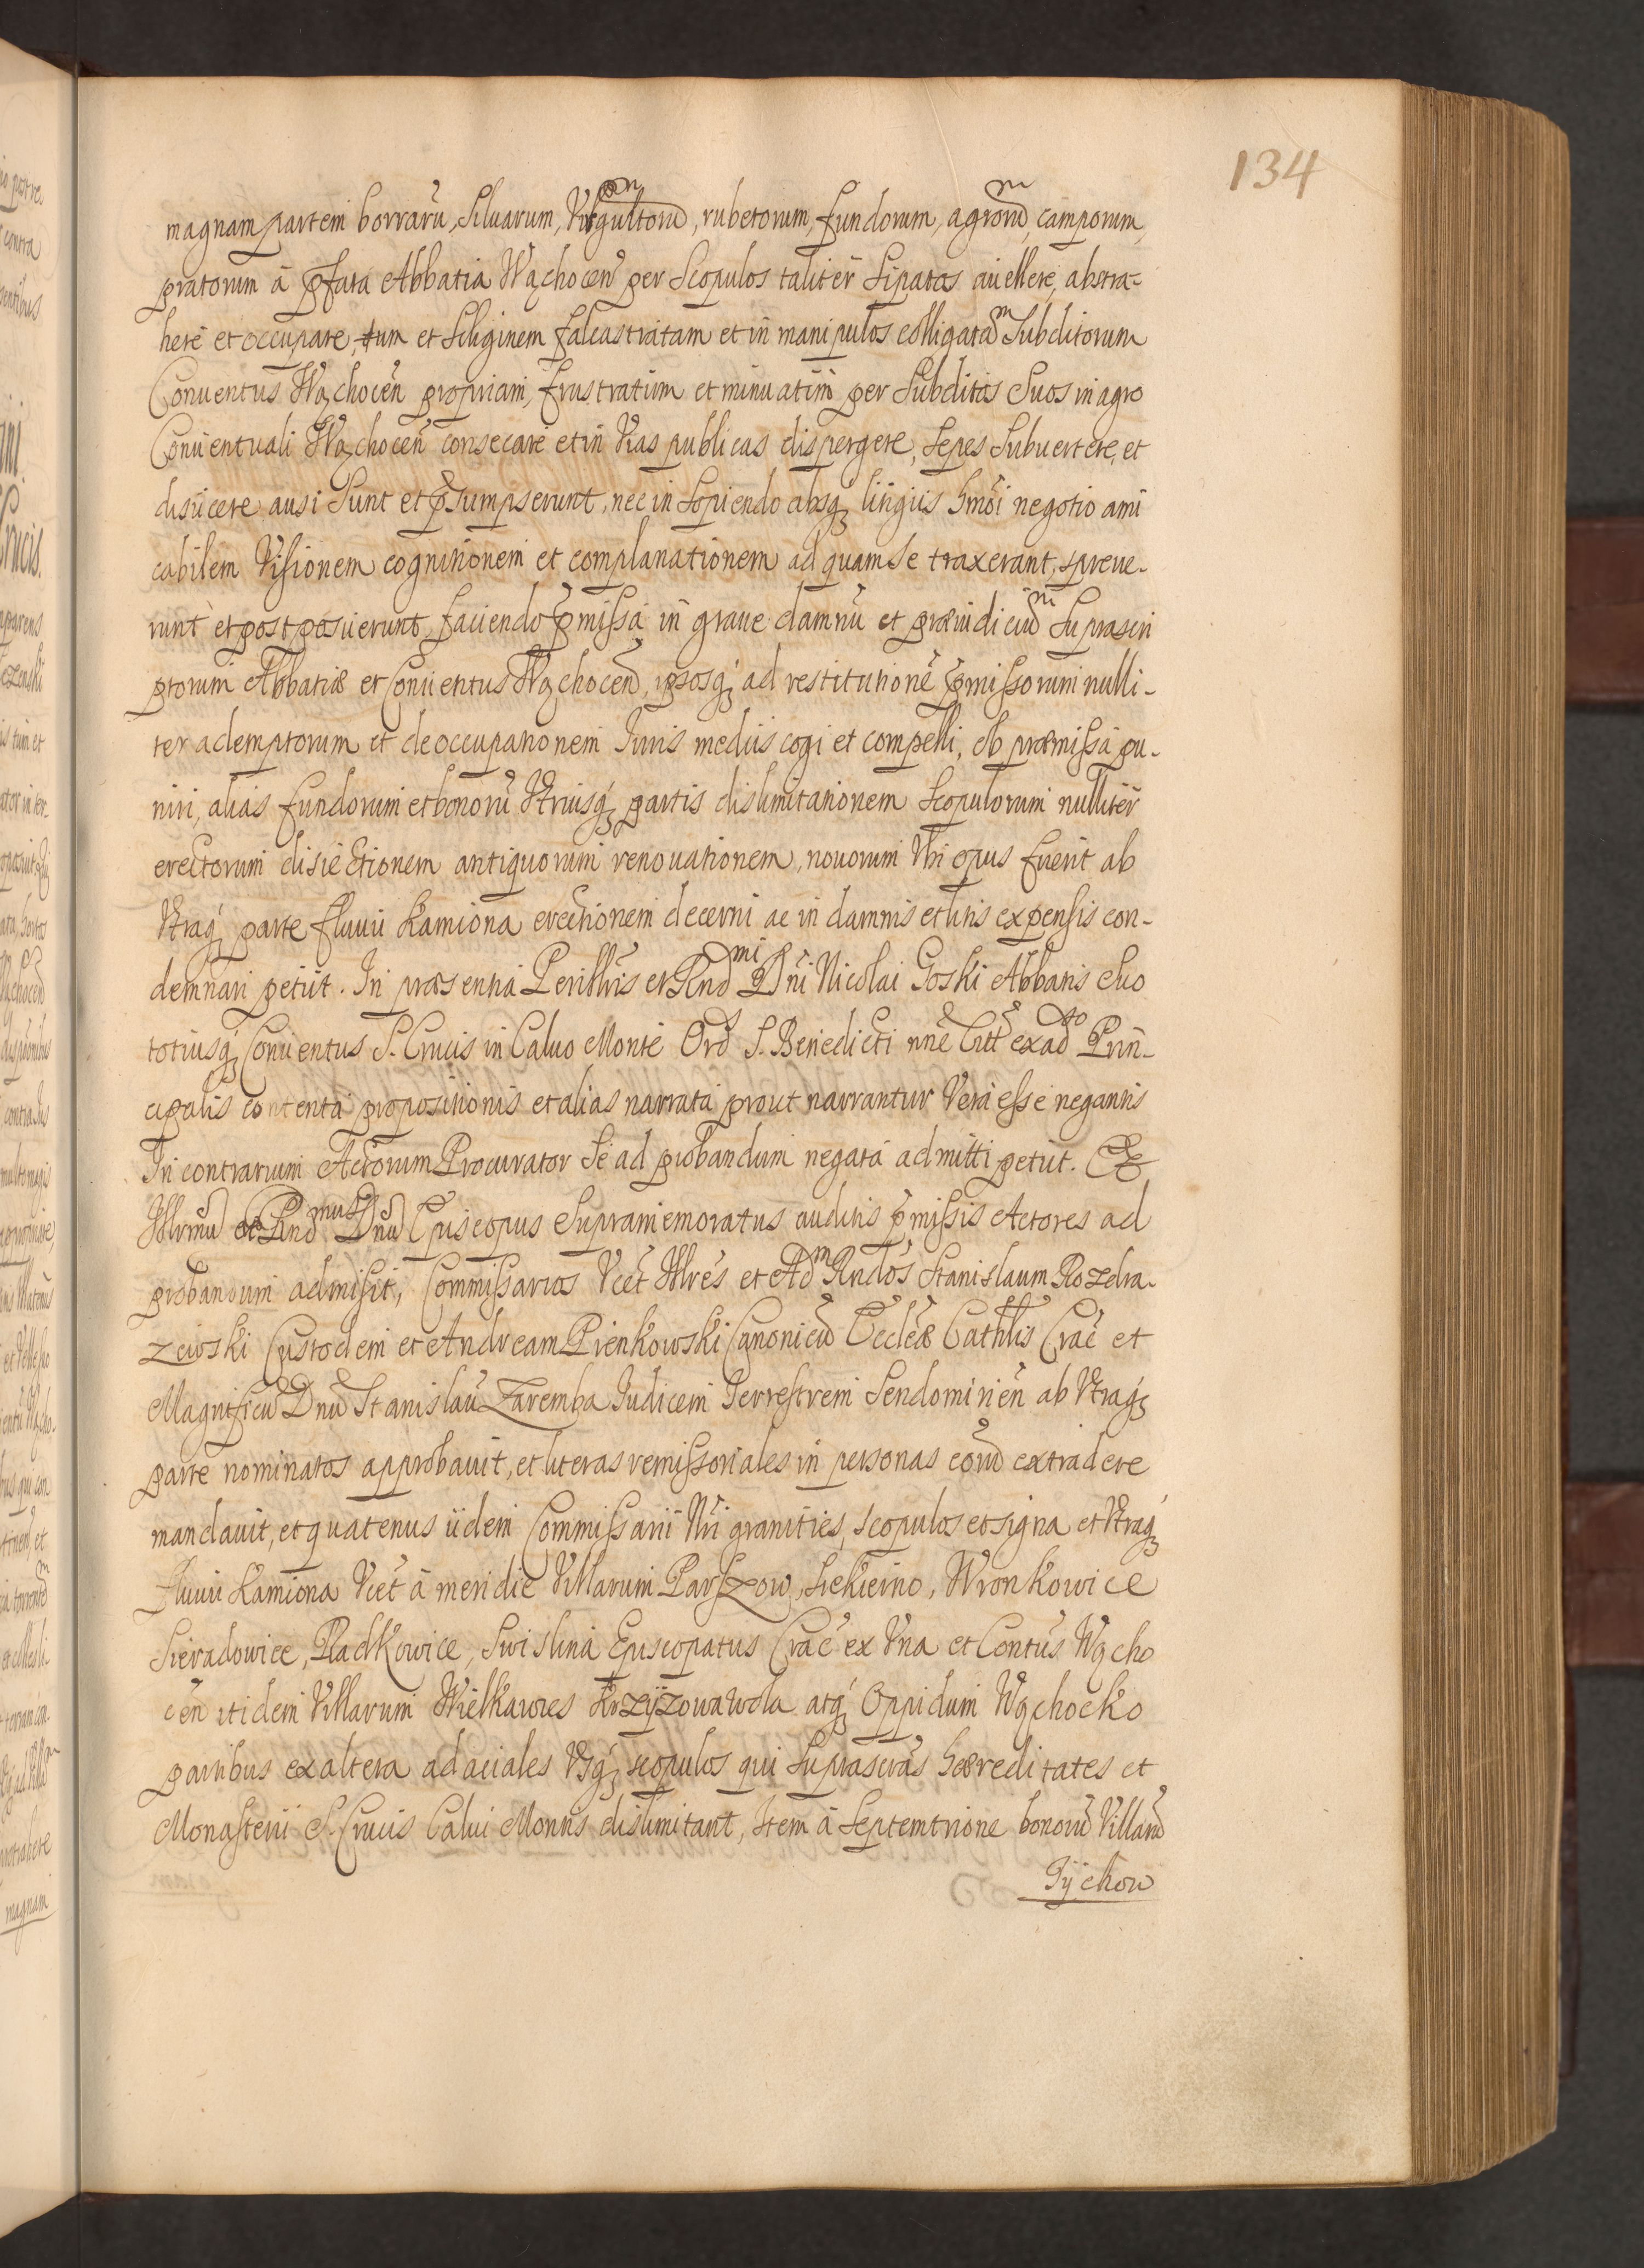 134
magnam partem borrarū, Siluarum, Virgultorū, rubetorum, fundorum, agrorū, camporum,
pratorum à p̄fata Abbatia Wąchocen̄ per Scopulos taliter Sipatos auellere, abstra-
here et occupare, tum et Siliginem falcastratam et in manipulos colligatam Subditorum
Conuentus Wąchocen̄ propriam, frustratim et minuatim per Subditos Suos in agro
Conuentuali Wąchocen̄ consecare et in Vias publicas dispergere, Sepes Subuertere, et
disiicere ausi Sunt et p̄sumpserunt, nec in Sopiendo absq3 litigiis hmōi negotio ami
cabilem Visionem cognitionem et complanationem ad quam se traxerant, spreue-
runt et postposuerunt, faciendo p̄missa in graue damnū et præiudiciū Suprascri
ptorum Abbatiæ et Conuentus Wąchocen̄, ipsosq3 ad restitutionē p̄missorum nulli-
ter ademptorum et deoccupationem Iuris mediis cogi et compelli, ob præmissa pu-
niri, alias fundorum et bonorū Vtriusq3 partis dislimitationem Scopulorum nulliter
erectorum disiectionem antiquorum renouationem, nouorum Vbi opus fuerit ab
Vtraq3 parte fluuii Kamiona erectionem decerni ac in damnis et litis expensis con-
demnari petiit. In præsentia Perillris et Rndmi Dn̄i Nicolai Goski Abbatis Suo
totiusq3 Conuentus S. Crucis in Caluo Monte Ord S. Benedicti nn̄e Citt ex ado Prin̄-
cipalis contenta propositionis et alias narrata prout narrantur Vera esse negantis
In contrarium Actorum Procurator Se ad probandum negata admitti petiit. Et
Illrmū et Rndmus Dnū Episcopus Supramemoratus auditis p̄missis Actores ad
probandum admisit, Commissarios Vcēt Illrēs et Adm Rndōs Stanislaum Rozdra-
zewski Custodem et Andream Pienkowski Canonicū Ecclæ Cathlis Crac̄ et
Magnificū Dnū Stanislaū Zaremba Iudicem Terrestrem Sendomirien̄ ab Vtraq3
parte nominatos approbauit, et literas remissoriales in personas eorū extradere
mandauit, et quatenus iidem Commissarii Vbi granities, scopulos et signa et Vtraq3
Fluuii Kamiona Vcēt à meridie Villarum Parszow, Siekierno, Wronkowice
Sieradowice, Radkowice, Swislina Episcopatus Crac̄ ex Vna et Contūs Wącho
cen̄ itidem Villarum Wielkawies Krzyżowawola atq3 Oppidum Wąchocko
partibus ex altera ad aciales Vsq3 scopulos qui Suprascrās hæreditates et
Monasterii S. Crucis Calui Montis dislimitant, Item à Septemtrione bonorū Villarū
Tÿchow